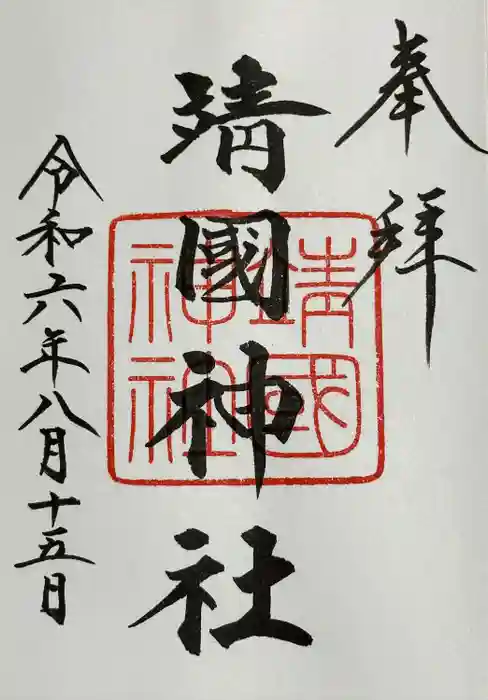 奉拜
靖國神社
靖國
神社
令和六年八月十五日